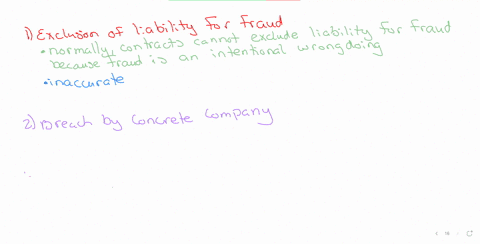 1) Exclusion of liability for fraud
• normally, contracts cannot exclude liability for fraud
because fraud is an intentional wrongdoing
• inaccurate
2) Breach by concrete company